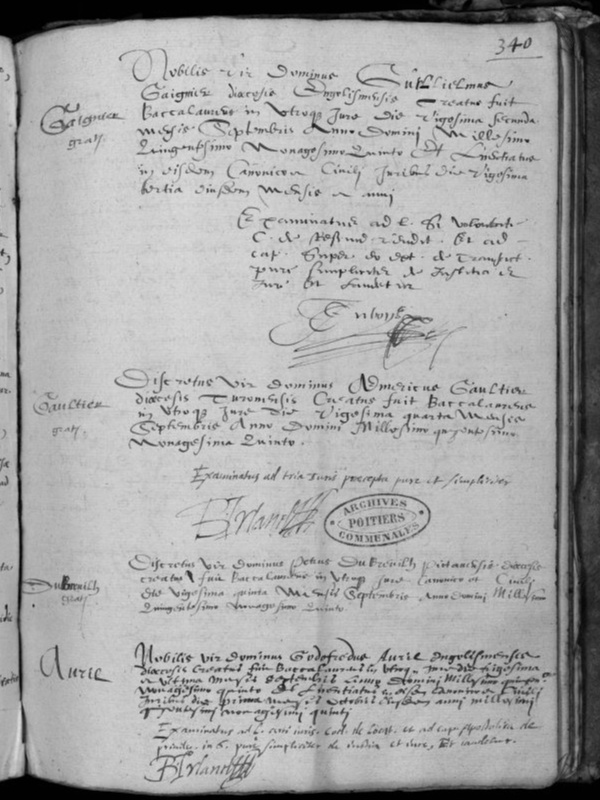 340
Nobilis vir Dominus Guillielmus
Gaignier diocesis Engolismensis Creatus fuit
Gaignier
gratis.
Baccalaureus in Utroque Jure die Vigesima secunda
mensis Septembris Anno Domini Millesimo
Quingentesimo Nonagesimo Quinto Et Licentiatus
in eisdem Canonico et Civili Juribus die Vigesima
tertia eiusdem mensis et anni
Examinatus ad l. Si voluntate
C. de Rescind. vendit. Et ad
cap. Super eo ext. de Transact.
pure simpliciter de Justitia et
Jure Et laudetur
Discretus vir Dominus Admericus Gaultier
diocesis Turonensis Creatus fuit Baccalaureus
Gaultier
gratis.
in Utroque Jure Die Vigesima quarta Mensis
Septembris Anno Domini Millesimo quingentesimo
Nonagesimo Quinto.
Examinatus ad tria Juris precepta pure et simpliciter
BIrland
ARCHIVES
POITIERS
COMMUNALES
Discretus vir dominus Petrus DuBreuilh Pictavensis diocesis
creatus fuit Baccalaureus in Utroque Jure Canonico et Civili
DuBreuilh
gratis.
die vigesima quinta Mensis Septembris Anno Domini Millesimo
Quingentesimo Nonagesimo Quinto.
Nobilis vir dominus Godofredus Auril Engolismensis
diocesis Creatus fuit Baccalaureus in Utroque Jure die vigesima
Auril
mensis Septembris Anno Domini Millesimo
nonagesimo quinto Et Licentiatus in eisdem Canonico et Civili
Juribus die prima mensis Octobris eiusdem anni millesimi
quingentesimi nonagesimi quinti
Examinatus ad l. Cod. de et ad cap.
in 6. pure simpliciter de iustitia et iure, Et laudetur.
BIrland